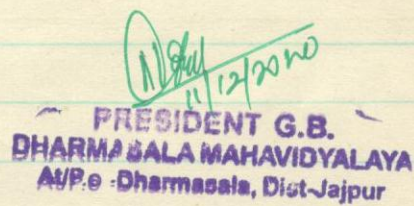 11/12/2020
PRESIDENT G.B.
DHARMASALA MAHAVIDYALAYA
At/P.o -Dharmasala, Dist-Jajpur